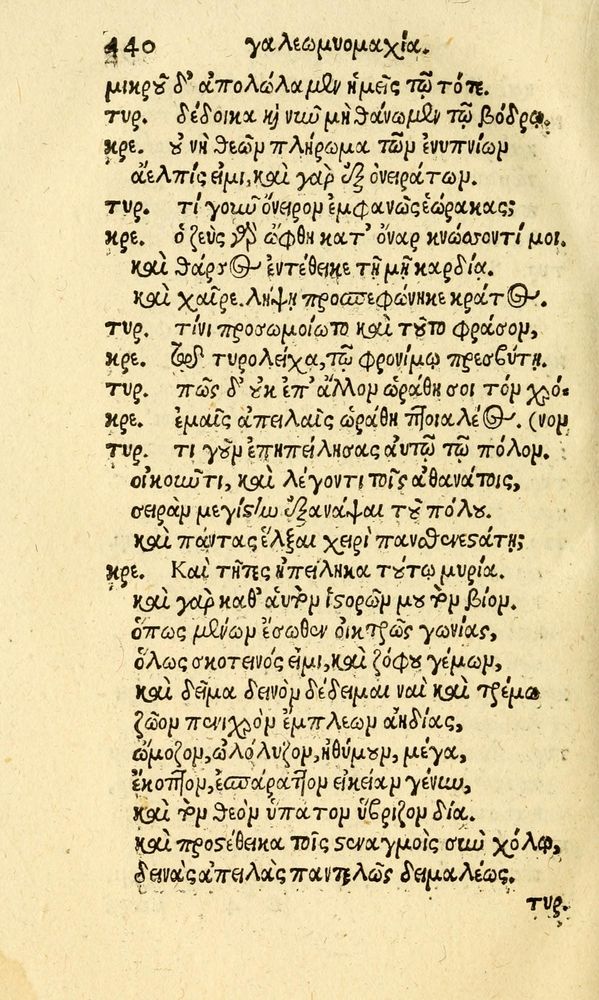 440 γαλεωμυομαχία.
μικροῦ δ' ἀπολώλαμεν ἡμεῖς τῷ τότε.
τυρ. δέδοικα καὶ νῦν μὴ θάνωμεν τῷ βόθρῳ.
κρε. οὐ νὴ θεῶν πλήρωμα τῶν ἐνυπνίων
ἀελπίς εἰμι, καὶ γὰρ ἐξ ὀνειράτων.
τυρ. τί γοῦν ὄνειρον ἐμφανῶς ἑώρακας;
κρε. ὁ ζεὺς γὰρ ὤφθη κατ' ὄναρ κνώσσοντί μοι.
καὶ θάρσος ἐντέθεικε τῇ μῇ καρδίᾳ.
καὶ χαῖρε. λήψῃ προσπεφώνηκε κράτος.
τυρ. τίνι προσωμοίωτο καὶ τοῦτο φράσον,
κρε. τυρολείχᾳ, τῷ φρονίμῳ πρεσβύτῃ.
τυρ. πῶς δ' οὐκ ἐπ' ἄλλον ὡράθη σοι τὸν χρό-
κρε. ἐμαῖς ἀπειλαῖς ὡράθη πτοιαλέος. (νον
τυρ. τι γοῦν ἐπηπείλησας αὐτῷ τῷ πόλον.
οἰκοῦντι, καὶ λέγοντι τοῖς ἀθανάτοις,
σειρὰν μεγίστην ἐξανάψαι τοῦ πόλου.
καὶ πάντας ἕλξαι χειρὶ πανσθενεστάτῃ;
κρε. Καὶ τῆτες ἠπείληκα τούτῳ μυρία.
καὶ γὰρ καθ' αὑτὸν ἱστορῶν μου τὸν βίον.
ὅπως μένων ἔσωθεν οἰκτρῶς γωνίας,
ὅλως σκοτεινός εἰμι, καὶ ζόφου γέμων,
καὶ δεῖμα δεινὸν δέδειμαι ναὶ καὶ τρέμω
ζῶον πενιχρὸν ἔμπλεων ἀηδίας,
ᾤμοζον, ὠλόλυζον, ἠθύμουν, μέγα,
ἐκοπτόμην, ἐσπάραττον εἰκείαν γένυν,
καὶ τὸν θεὸν ὕπατον ὕβριζον δία.
καὶ προστέθεικα τοῖς στεναγμοῖς σὺν χόλῳ,
δεινὰς ἀπειλὰς παντελῶς δειμαλέως.
τυρ.